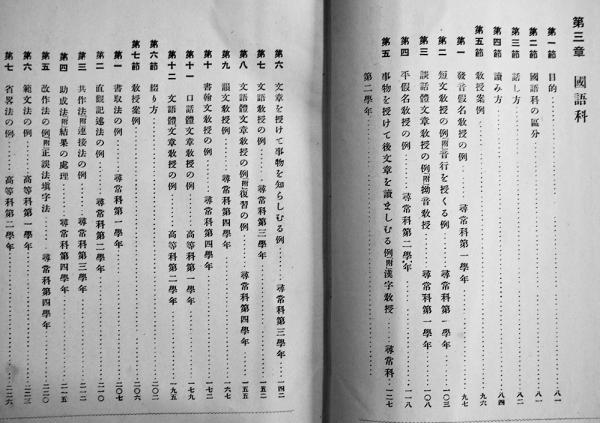 第三章 國語科
第一節 目的……八一
第二節 國語科の區分……八一
第三節 話し方……八二
第四節 讀み方……八四
第五節 敎授案例……九六
第一 發音假名敎授の例……尋常科第一學年……九七
第二 短文敎授の例附音行を授くる例……尋常科第一學年……一〇三
第三 談話體文章敎授の例附拗音敎授……尋常科第一學年……一〇八
第四 平假名敎授の例……尋常科第二學年……一一八
第五 事物を授けて後文章を讀ましむる例附漢字敎授……尋常科第二學年……一二七
第六 文章を授けて事物を知らしむる例……尋常科第三學年……一四二
第七 文語敎授の例……尋常科第三學年……一五二
第八 文語體文章敎授の例附復習の例……尋常科第四學年……一五五
第九 韻文敎授の例……尋常科第四學年……一六七
第十 書翰文敎授の例……尋常科第四學年……一七二
第十一 口語體文章敎授の例……高等科第一學年……一七九
第十二 文語體文章敎授の例……高等科第二學年……一九五
第六節 綴り方……二〇二
第七節 敎授案例……二〇六
第一 書取法の例……尋常科第一學年……二〇七
第二 直觀記述法の例……尋常科第二學年……二一〇
第三 共作法附連接法の例……尋常科第三學年……二一二
第四 助成法附結果の處理……尋常科第四學年……二一五
第五 改作法の例附正誤法塡字法……尋常科第四學年……二二〇
第六 範文法の例……高等科第一學年……二二三
第七 省畧法の例……高等科第二學年……二二六